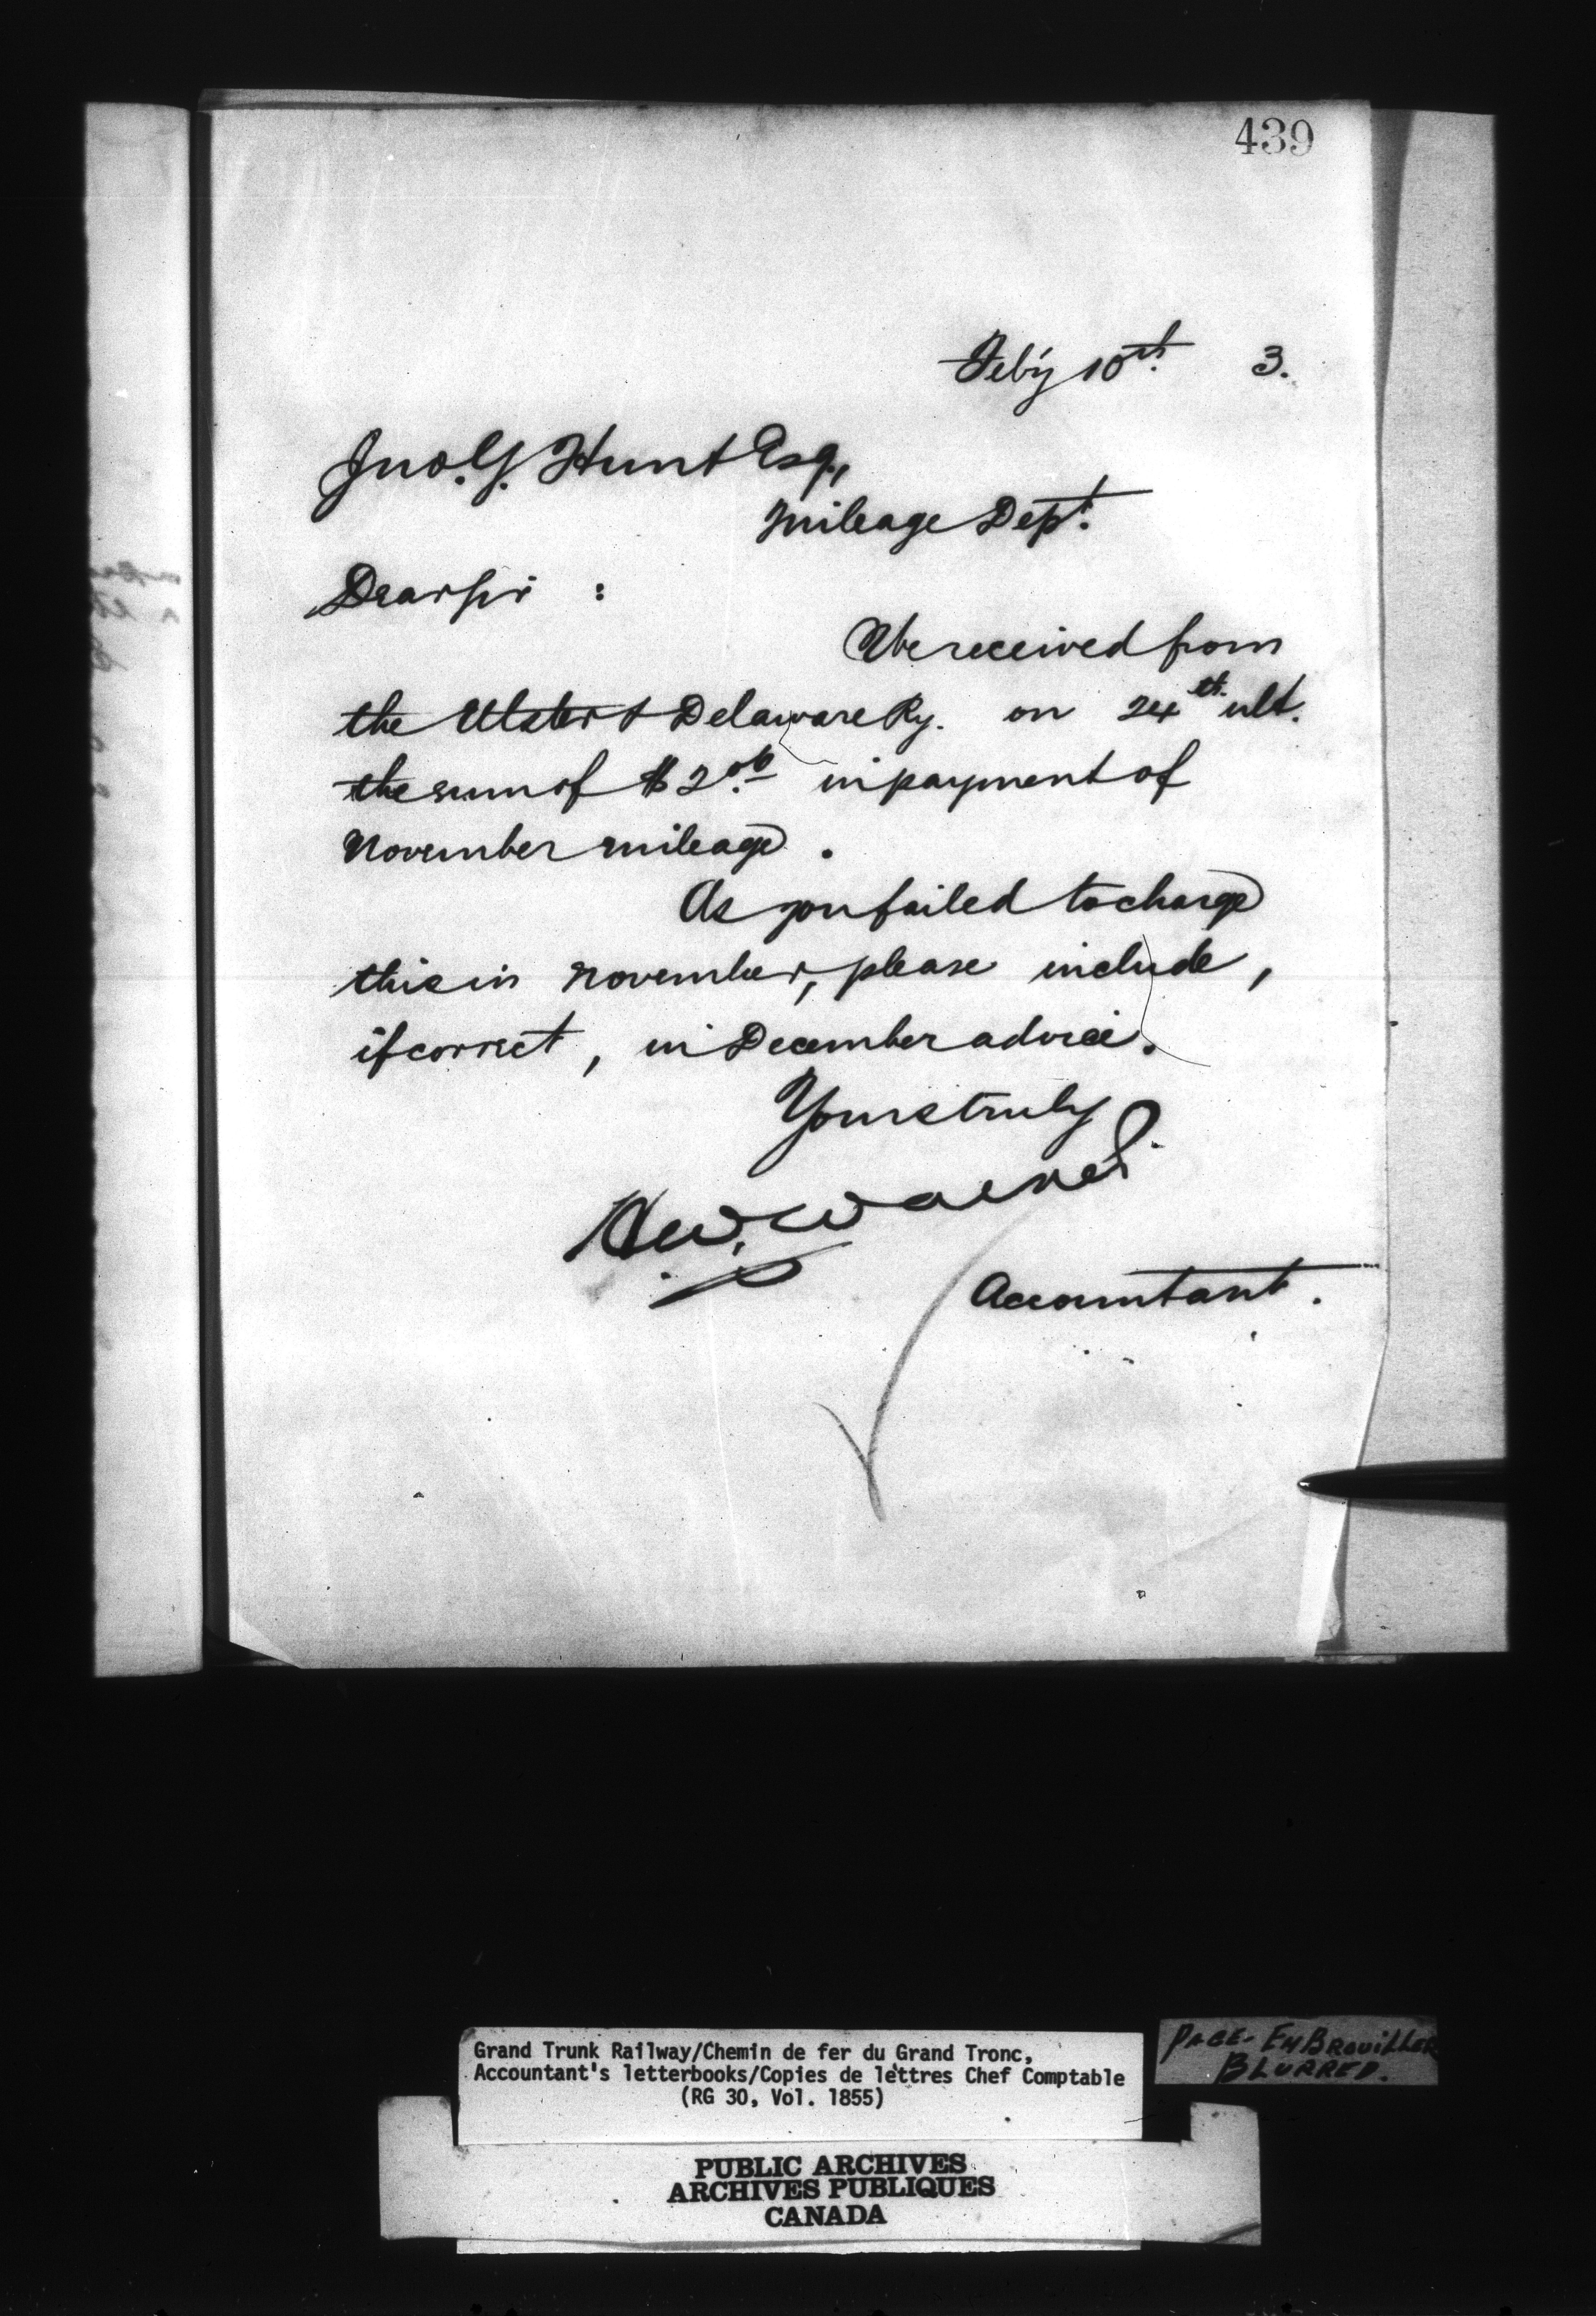 439
Feb'y 10th. 3.
Jno. Y. Hunt Esq.,
Mileage Dept.
Dear Sir :
We received from
the Ulster & Delaware Ry. on 24th. ult.
the sum of $2.06 in payment of
November mileage.
As you failed to charge
this in November, please include,
if correct, in December advice.
Yours truly
H.W. Walker
Accountant.
Grand Trunk Railway/Chemin de fer du Grand Tronc,
Accountant's letterbooks/Copies de lettres Chef Comptable
(RG 30, Vol. 1855)
PAGE- EMBROUILLER
BLURRED.
PUBLIC ARCHIVES
ARCHIVES PUBLIQUES
CANADA